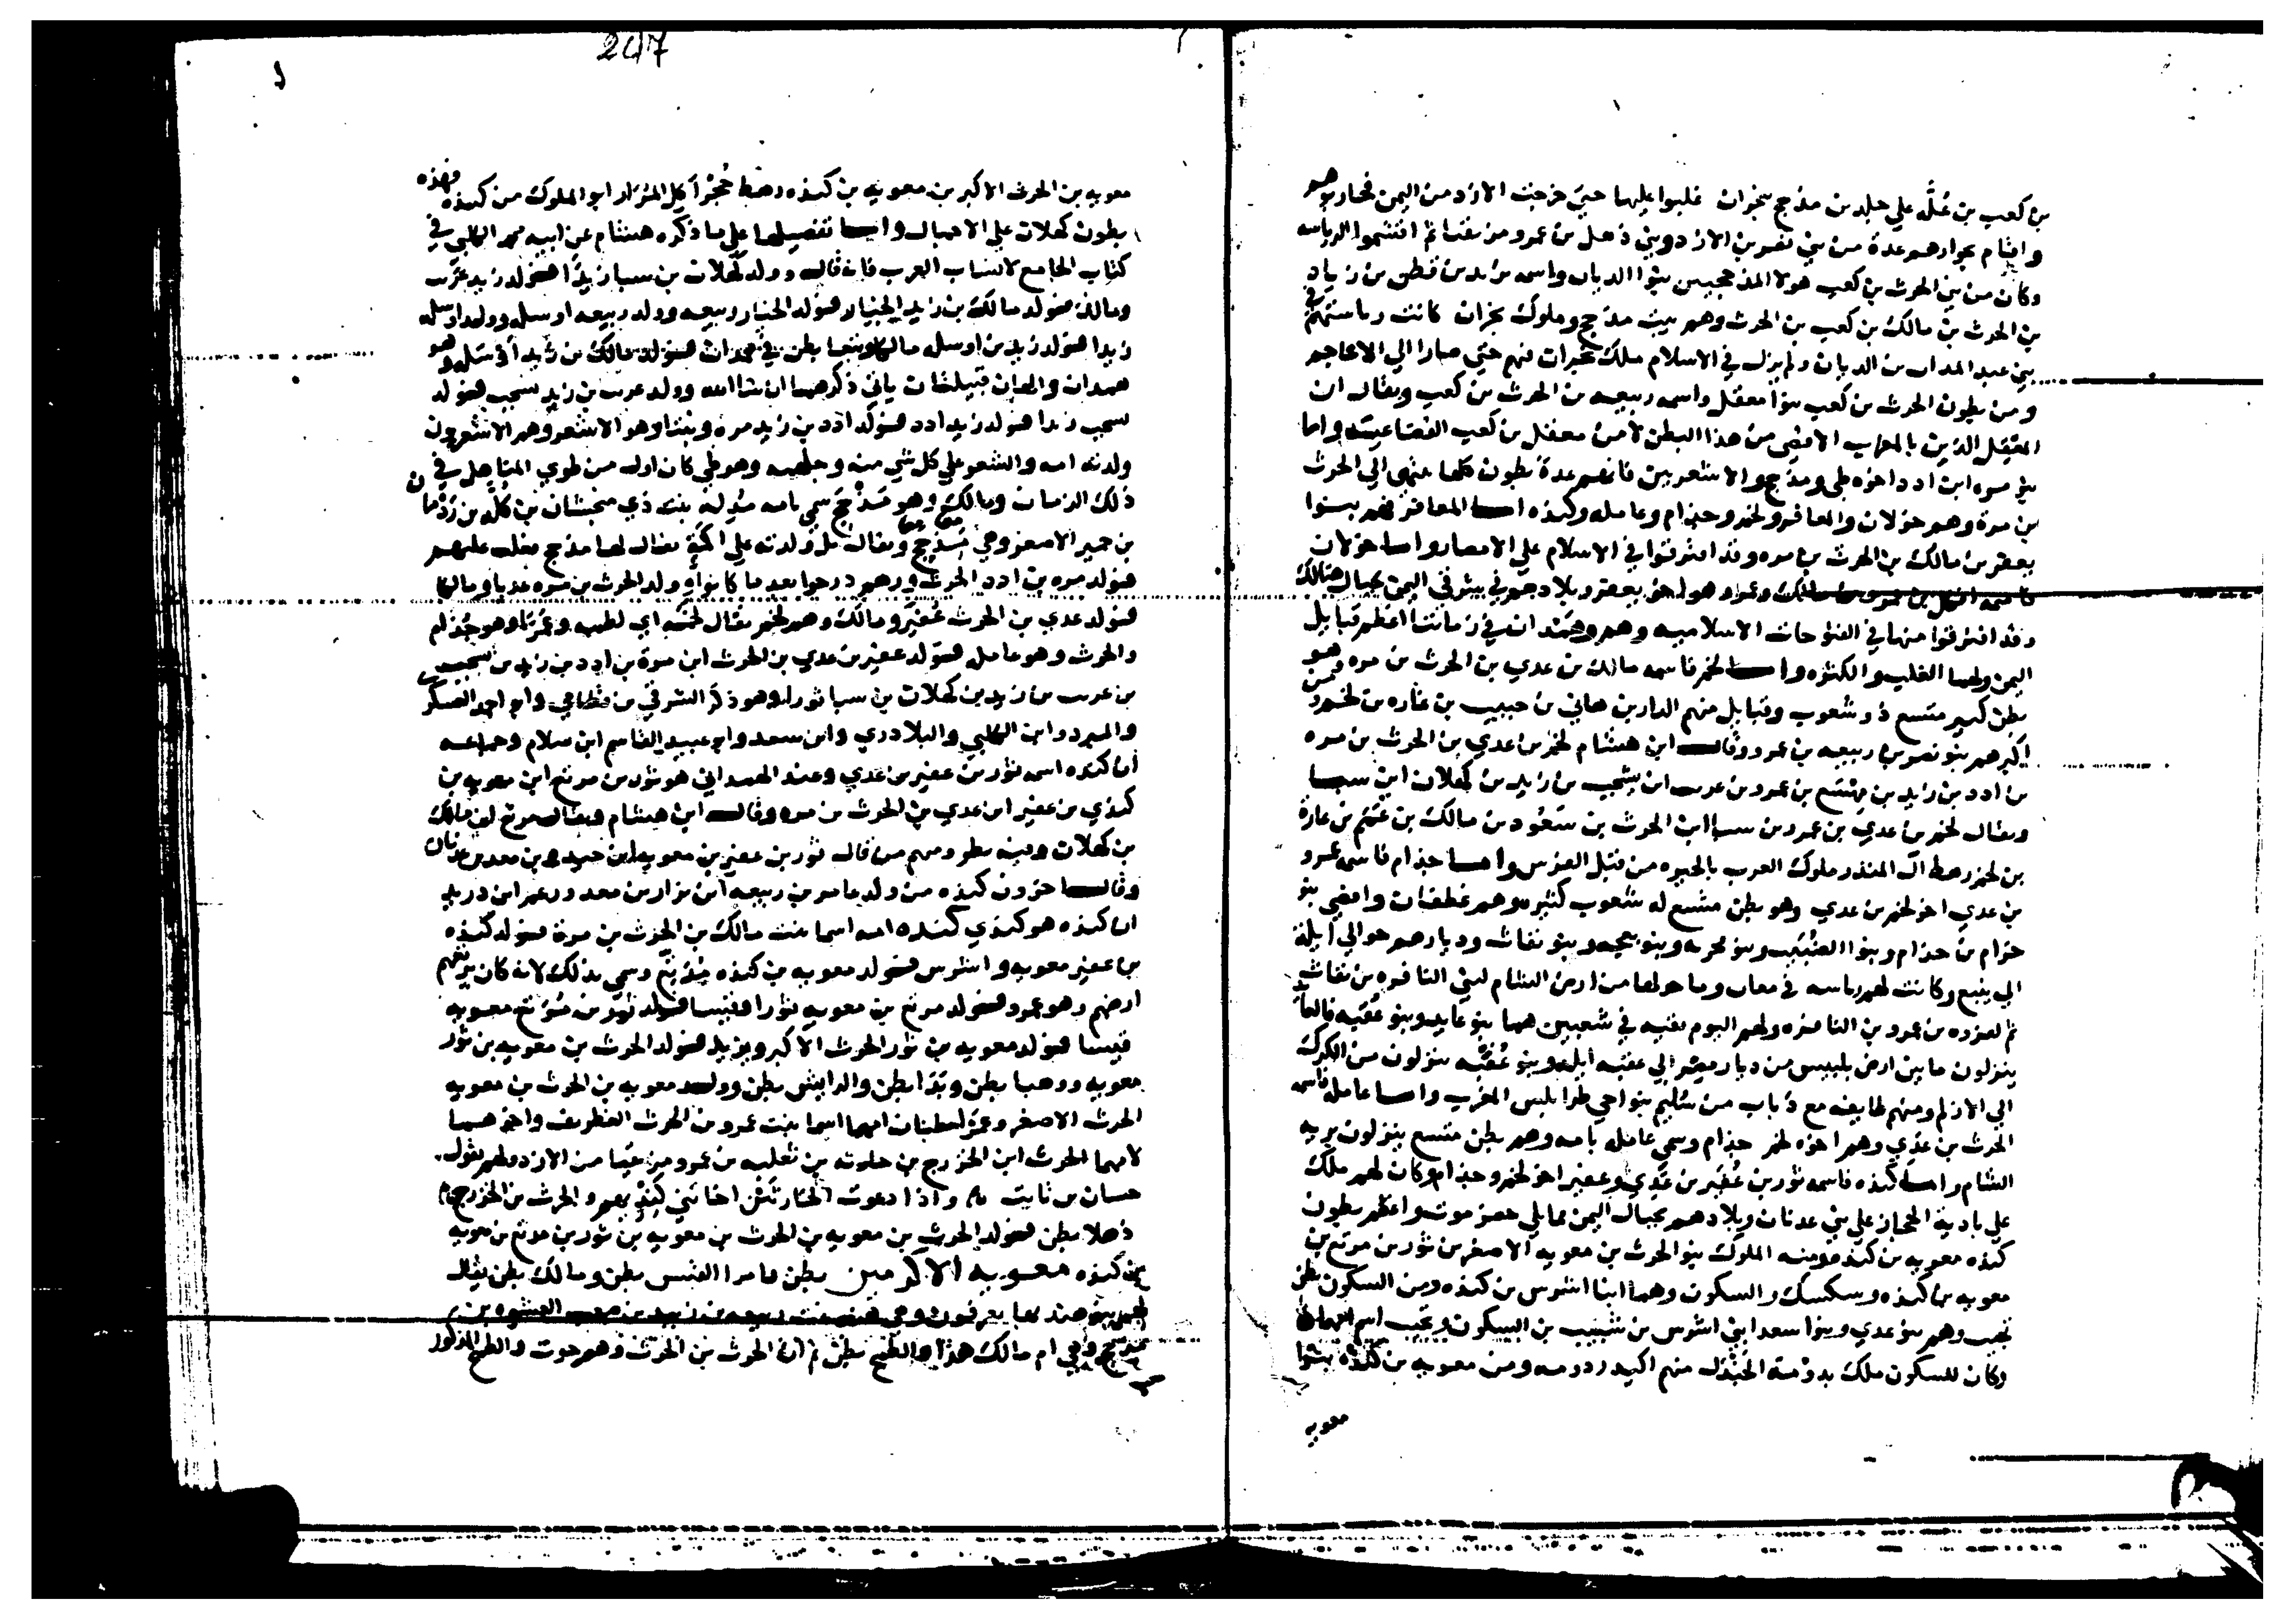 بن كعب بن عُلَّه علي جلد بن مذحج بنجران غلبوا عليها حين خرجت الازد من اليمن فحاربوهم
واقام بجوارهم عدة من بني نصر بن الازد وبني ذهل بن عمرو مزيقيا ثم اقتسموا الرياسه
وكان من بني الحرث بن كعب هولا المذحجيين بنوا الديان واسمه يزيد بن قطن بن زياد
بن الحرث بن مالك بن كعب بن الحرث وهم بيت مذحج وملوك نجران كانت رياستهم في
بني عبد المدان بن الديان ولم يزل في الاسلام ملك نجران فيهم حتى صار الي الاعاجم
ومن بطون الحرث بن كعب بنوا معقل واسمه ربيعه بن الحرث بن كعب ويقال ان
المعقل الذين بالمغرب الاقصي من هذا البطن لا من معقل بن كعب القضاعيه واما
بنو مره ابن ادد اخوه طي ومذحج والاشعريين فانهم عدة بطون كلها تنتهي الي الحرث
بن مرة وهم خولان والمعافر ولخم وجذام وعامله وكنده اما المعافر فهم بنوا
يعفر بن مالك بن الحرث بن مره وقد افترقوا في الاسلام علي الامصار واما خولان
فاسمه افكل بن عمرو بن مالك وعمرو هو اخو يعفر وبلادهم في شرقي اليمن بجبال هنالك
وقد افترقوا منها في الفتوحات الاسلاميه وهم وهمدان في زماننا اعظم قبايل
اليمن ولهما الغلب والكثره واما لخم فاسمه مالك بن عدي بن الحرث بن مره وهو
بطن كبير متسع ذو شعوب وقبايل منهم الدار بن هاني بن حبيب بن نماره بن لخم ومن
اكبرهم بنو نصر بن ربيعه بن عمرو وقال ابن هشام لخم بن عدي بن الحرث بن مره
بن ادد بن زيد بن مهسع بن عمرو بن عرب ابن يشجب بن زيد بن كهلان ابن سبا
ويقال لخم بن عدي بن عمرو بن سبا ابن الحرث بن سعود بن مالك بن غنم بن نمارة
بن لخم رهط ال المنذر ملوك العرب بالحيره من قبل الفرس واما جذام فاسمه عمرو
بن عدي اخو لخم بن عدي وهو بطن متسع له شعوب كثيره وهم غطفان وافصي بنو
حرام بن جذام وبنوا الضبيب وبنو مخرمه وبنو بعجه وبنو نفاث وديارهم حوالي ايلة
الي ينبع وكانت لهم رياسه في معان وما حولها من ارض الشام لبني النافره بن نفاثه
ثم لفروه بن عمرو بن النافره ولهم اليوم بقيه في شعبين هما بنو عايد وبنو عقبه فالعايد
ينزلون ما بين ارض بلبيس من ديار مصر الي عقبه ايله وبنو عُقبه ينزلون من الكرك
الي الازلم ومنهم طايفه مع ذباب من سُليم بنواحي طرابلس المغرب واما عامله فاسمه
الحرث بن عدي وهم اخوه لخم جذام وسمي عامله بامه وهم بطن متسع ينزلون بريه
الشام واما كنده فاسمه ثور بن عُفير بن عدي وعفير اخو لخم وجذام وكان لهم ملك
علي بادية الحجاز علي بني عدنان وبلادهم بجبال اليمن مما يلي حضرموت واعظم بطون
كنده معويه بن كنده ومنه الملوك بنو الحرث بن معويه الاصغر بن ثور بن مرتع بن
معويه بن كنده وسكسك والسكون وهما ابنا اشرس بن كنده ومن السكون بطن
تجيب وهم بنو عدي وبنوا سعد ابني اشرس بن شبيب بن السكون وتجيب اسم امهما
وكان للسكون ملك بدومة الجندل منهم اكيدر دومه ومن معويه بن كنده بنوا
معويه
207
معويه بن الحرث الاكبر بن معويه بن كنده رهط حُجر آكل المرار ابو الملوك من كنده فهذه
بطون كهلان علي الاجمال واما تفصيلها علي ما ذكره هشام عن ابيه محمد الكلبي في
كتاب الجامع لانساب العرب فانه قال وولد كهلان بن سبا زيدًا فولد زيد عرب
ومالك فولد مالك بن زيد الخيار فولد الخيار ربيعه وولد ربيعه اوسله وولد اوسله
زيدا فولد زيد بن اوسله مالكا وبنعا بطن في همدان فولد مالك بن زيد اوسله وهو
همدان والهان قبيلتان ياتي ذكرهما ان شا الله وولد عرب بن زيد يشجب فولد
يشجب زيدا فولد زيد ادد فولد ادد بن زيد مره ونبتا وهو الاشعر وهم الاشعريون
ولدته امه والشعر علي كل شي منه وجلهمه وهو طي كان اول من طوي المناهل في
ذلك الزمان ومالك وهو مذحج سمي بامه مُدله بنت ذي منجشان بن كُلّه بن ردمان
بن حمير الاصغر وهي مذحج ويقال بل ولدته علي اكمة يقال لها مذحج فغلب عليهم
فولد مره بن ادد الحرث ورهم درجوا بعد ما كانوا وولد الحرث بن مره عديا ومالكا
فولد عدي بن الحرث عُفير ومالك وهم لخم يقال لخمه اي لطمه وعمرًا وهو جُذام
والحرث وهو عامله فولد عفير بن عدي بن الحرث ابن مرة بن ادد بن زيد بن يشجب
بن عرب بن زيد بن كهلان بن سبا ثورا وهو ذكر الشرقي بن قطامي وابو احمد العسكري
والمبرد وابن الكلبي والبلاذري وابن سعد وابو عبيد القاسم ابن سلام وجماعه
ان كنده اسمه ثور بن عفير بن عدي وعند الهمداني هو ثور بن مرتع ابن معويه بن
كندي بن عفير ابن عدي بن الحرث بن مره وقال ابن هشام ويقال مرتع ابن مالك
بن كهلان وفيه نظر ومنهم من قال ثور بن عفير بن معويه ابن حيده بن معد بن عدنان
وقال اخرون كنده من ولد عامر بن ربيعه ابن نزار بن معد وزعم ابن دريد
ان كنده هو كندي كنده امه اسما بنت مالك بن الحرث بن مرة فولد كنده
بن عفير معويه واشرس فولد معويه بن كنده مُرتع وسمي بذلك لانه كان يرتعهم
ارضهم وهو عمرو فولد مرتع بن معويه ثورا وقيسا فولد ثور بن مُرتع معويه
قيسا فولد معويه بن ثور الحرث الاكبر ويزيد فولد الحرث بن معويه بن ثور
معويه ووهبا بطن وبدا بطن والرايش بطن وولد معويه بن الحرث بن معويه
الحرث الاصغر وعمرا بطنان امهما اسما بنت عمرو بن الحرث الغطريف واخوهما
لامهما الحرث ابن الخزرج بن حارثه بن ثعلبه بن عمرو مزيقيا من الازد ولهم يقول
حسان بن ثابت واذا دعوت الحارثين اخا بني كنده عمرو الحرث بن الخزرج
ذهلا بطن فولد الحرث بن معويه بن الحرث بن معويه بن ثور بن مرتع بن معويه
بن كنده معويه الاكرمين بطن وامرا القيس بطن ومالك بطن يقال
لهم بنو هند بها يعرفون وهي هند بنت ربيعه بن زبيد بن صعب العشيره بن
مذحج وهي ام مالك هذا والطمح بطن ثم ان الحرث بن الحرث وهم حوت والطمح المذكور